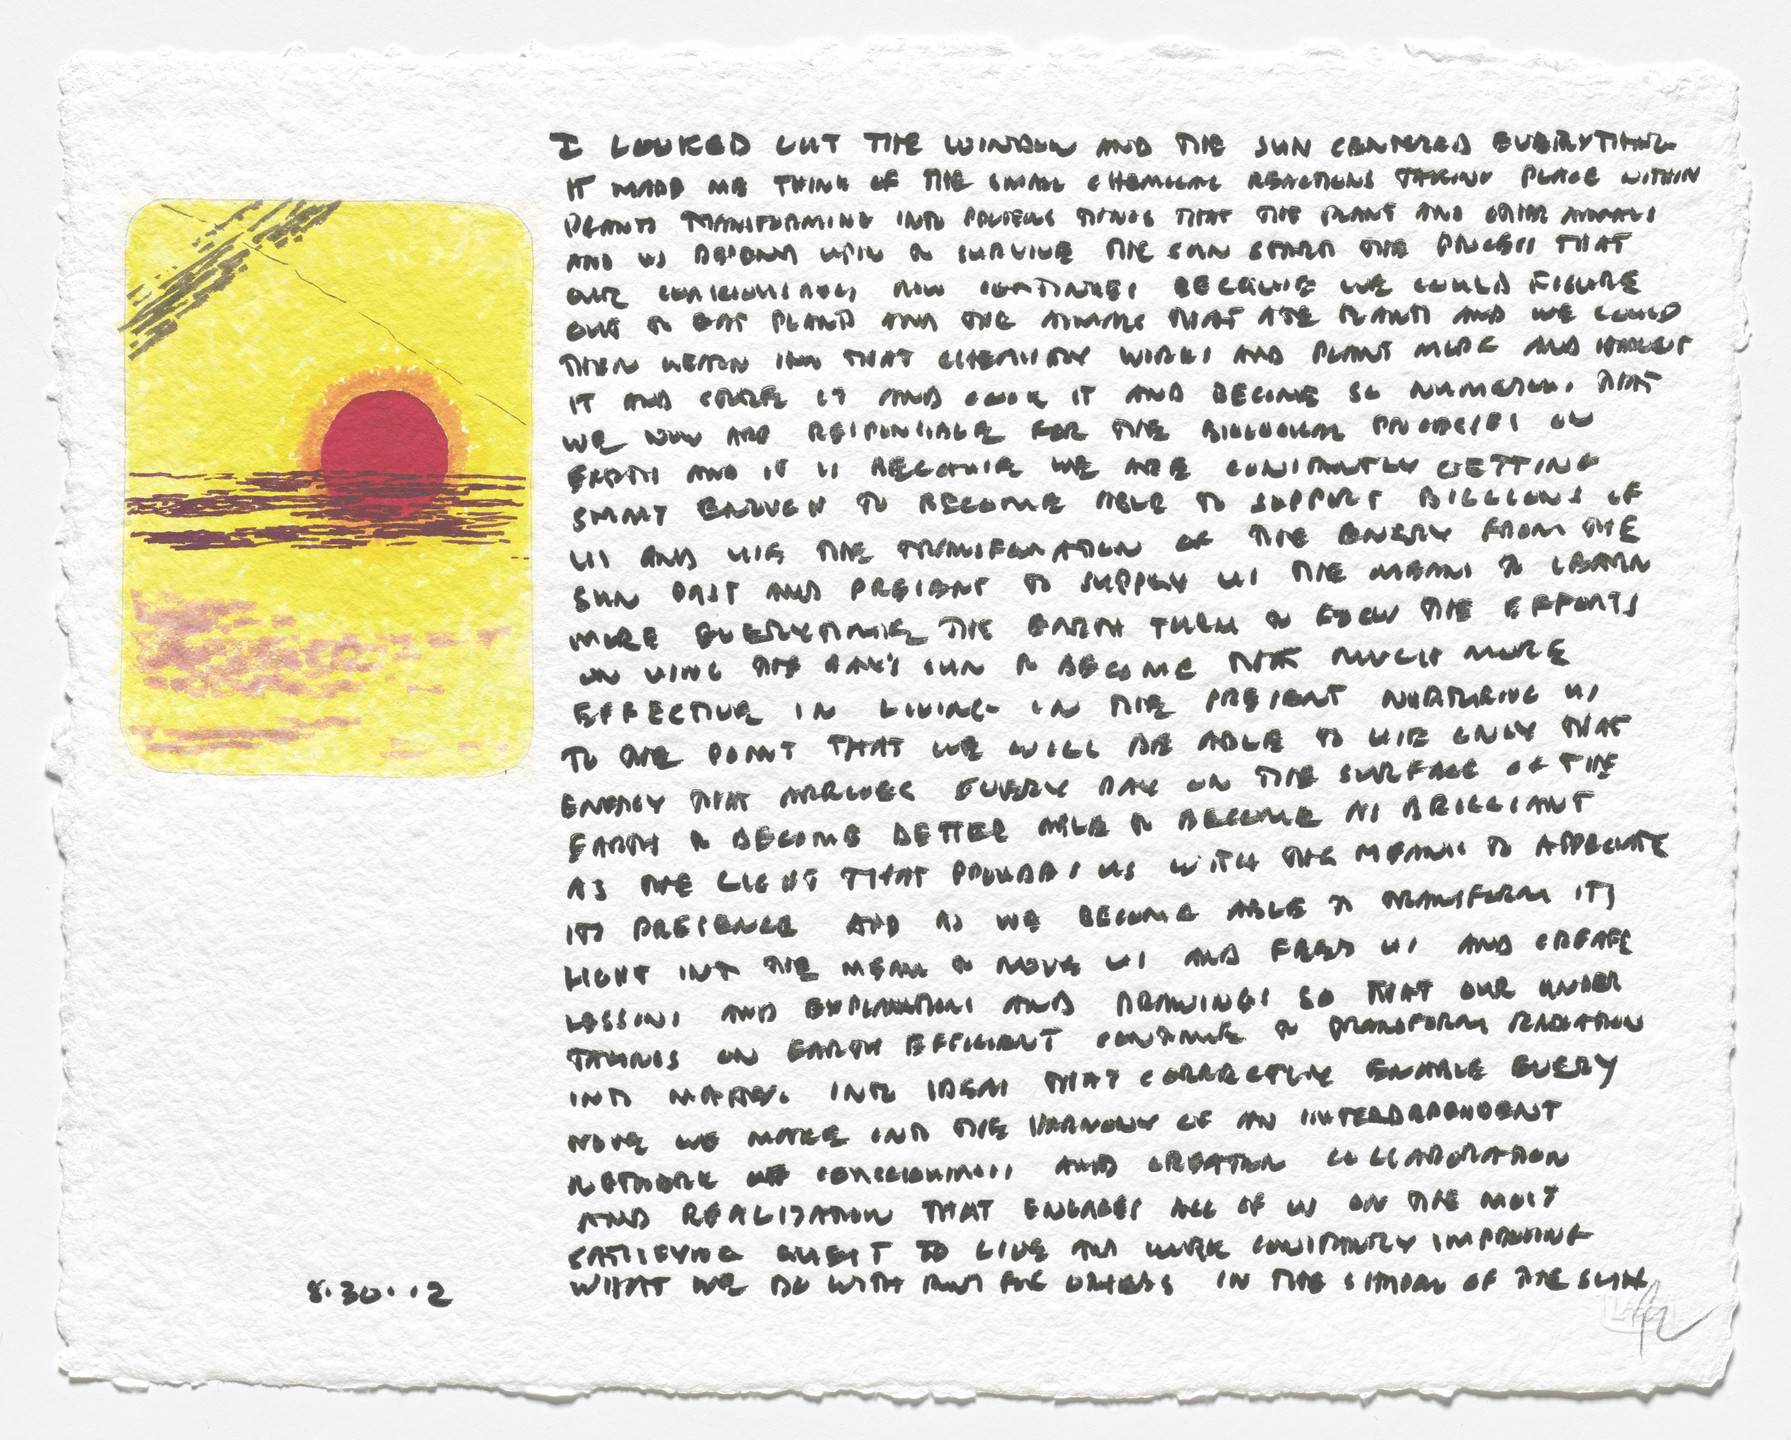 I LOOKED OUT THE WINDOW AND THE SUN CENTERED EVERYTHING
IT MADE ME THINK OF THE SMALL CHEMICAL REACTIONS TAKING PLACE WITHIN
PLANTS TRANSFORMING INTO THINGS THAT THE PLANT AND OTHER ANIMALS
AND US DEPEND UPON TO SURVIVE THE SUN STARTS THE PROCESS THAT
OUR CONSCIOUSNESS NOW CONTINUES BECAUSE WE COULD FIGURE
OUT TO EAT PLANTS AND THE ANIMALS THAT ATE PLANTS AND WE COULD
THEN LEARN HOW THAT CHEMISTRY WORKS AND PLANT MORE AND HARVEST
IT AND STORE IT AND COOK IT AND BECOME SO NUMEROUS THAT
WE NOW ARE RESPONSIBLE FOR THE BIOLOGICAL PROCESSES ON
EARTH AND IT IS BECAUSE WE ARE CONSTANTLY GETTING
SMART ENOUGH TO BECOME ABLE TO SUPPORT BILLIONS OF
US AND USE THE TRANSFORMATION OF THE ENERGY FROM THE
SUN PAST AND PRESENT TO SUPPLY US THE MEANS TO LEARN
MORE EVERYTIME THE EARTH TURNS TO FOCUS THE EFFORTS
ON USING THE DAY'S SUN TO BECOME THAT MUCH MORE
EFFECTIVE IN LIVING IN THE PRESENT NURTURING US
TO THE POINT THAT WE WILL BE ABLE TO USE ONLY THAT
ENERGY THAT ARRIVES EVERY DAY ON THE SURFACE OF THE
EARTH TO BECOME BETTER ABLE TO BECOME AS BRILLIANT
AS THE LIGHT THAT PROVIDES US WITH THE MEANS TO APPRECIATE
ITS PRESENCE AND AS WE BECOME ABLE TO TRANSFORM ITS
LIGHT INTO THE MEANS TO MOVE US AND FEED US AND CREATE
LESSONS AND EXPLANATIONS AND DRAWINGS SO THAT OUR UNDER
TAKINGS ON EARTH EFFICIENT CONTINUE TO TRANSFORM RADIATION
INTO MATTER INTO IDEAS THAT CORRECTLY ENABLE EVERY
MOVE WE MAKE INTO THE HARMONY OF AN INTERDEPENDENT
NETWORK OF CONSCIOUSNESS AND CREATION COLLABORATION
AND REALIZATION THAT ENGAGES ALL OF US ON THE MOST
SATISFYING QUEST TO LIVE AND WORK CONSTANTLY IMPROVING
WHAT WE DO WITH AND FOR OTHERS IN THE OF THE SUN
8.30.12